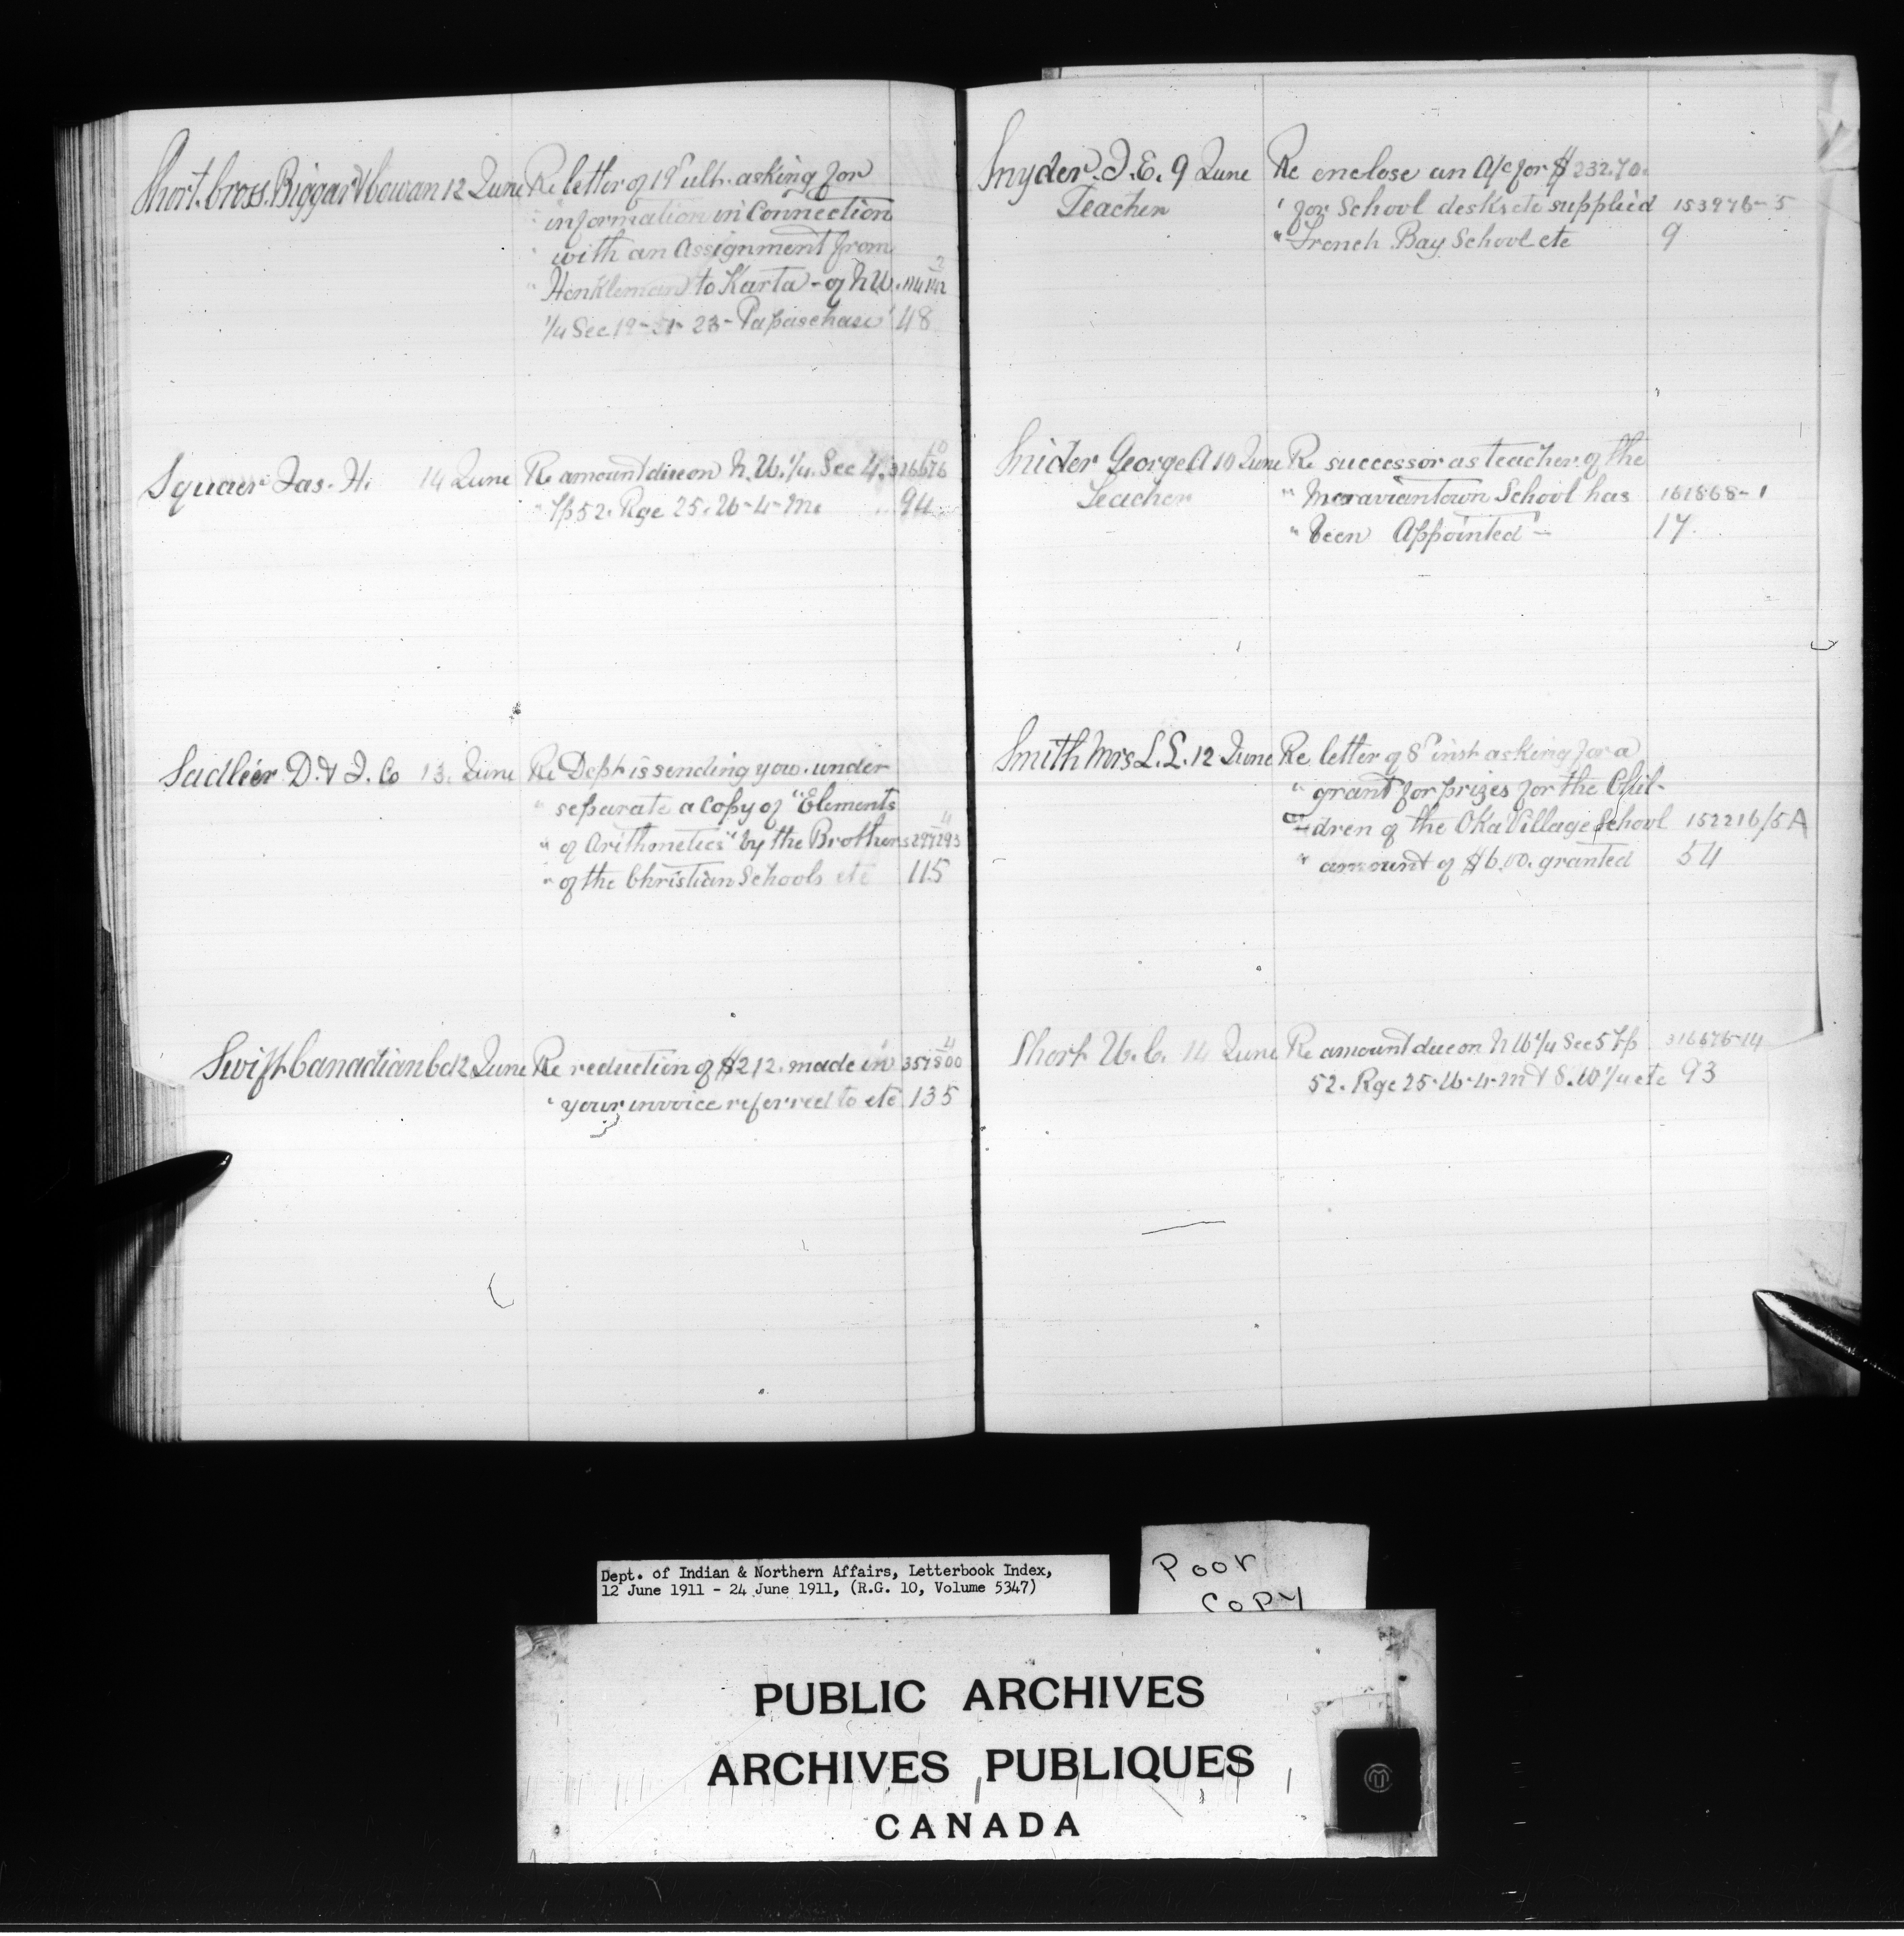 Short. Cross. Biggar & Cowan 12 June Re letter of 19th ult. asking for
" information in Connection
" with an Assignment from
" Henkleman to Karta - of N.W.
1/4 Sec 19-51-23- Papaschase 48
Squair Jas. H. 14 June Re amount due on N.W. 1/4. Sec 4. 316676 10
" Tp 52. Rge 25. W-4-M. 94
Sadlier D. & J. Co 13. June Re Dept is sending you. under
" separate a copy of "Elements
" of Arithmetics" by the Brothers 297293 4
" of the Christian Schools etc 115
Swift Canadian Co 12 June Re reduction of $212. made in 357500 4
" your invoice referred to etc 135
Snyder. J. E. 9 June Re enclose an A/c for $232.70.
Teacher " for School desks etc supplied 153976-5
" French Bay School etc 9
Snider George A 10 June Re successor as teacher of the
Teacher " Moraviantown School has 161868-1
" been Appointed - 17.
Smith Mrs L. L. 12 June Re letter of 8th inst asking for a
" grant for prizes for the Chil-
" dren of the Oka Village School 152216/5A
" amount of $6.00. granted 54
Short W. C. 14 June Re amount due on N W 1/4 Sec 5 Tp 316676-14
52. Rge 25-W-4-M & S.W 1/4 etc 93
Dept. of Indian & Northern Affairs, Letterbook Index,
12 June 1911 - 24 June 1911, (R.G. 10, Volume 5347)
Poor
Copy
PUBLIC ARCHIVES
ARCHIVES PUBLIQUES
CANADA